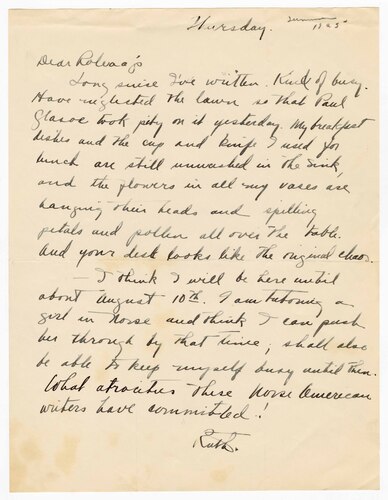 Thursday. Summer 1925
Dear Rolvaags
Long since I've written. Kind of busy.
Have neglected the lawn so that Paul
Glasoe took pity on it yesterday. My breakfast
dishes and the cup and knife I used for
lunch are still unwashed in the sink,
and the flowers in all my vases are
hanging their heads and spilling
petals and pollen all over the table.
And your desk looks like the original chaos.
I think I will be here until
about August 10th. I am tutoring a
girl in Norse and think I can push
her through by that time; shall also
be able to keep myself busy until then.
What atrocities these Norse American
writers have committed!
Ruth.